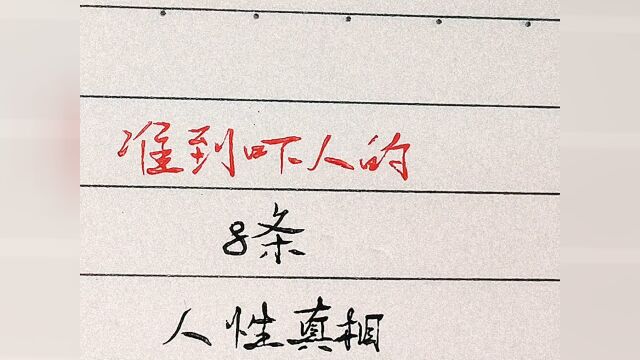 准到吓人的
8条
人性真相